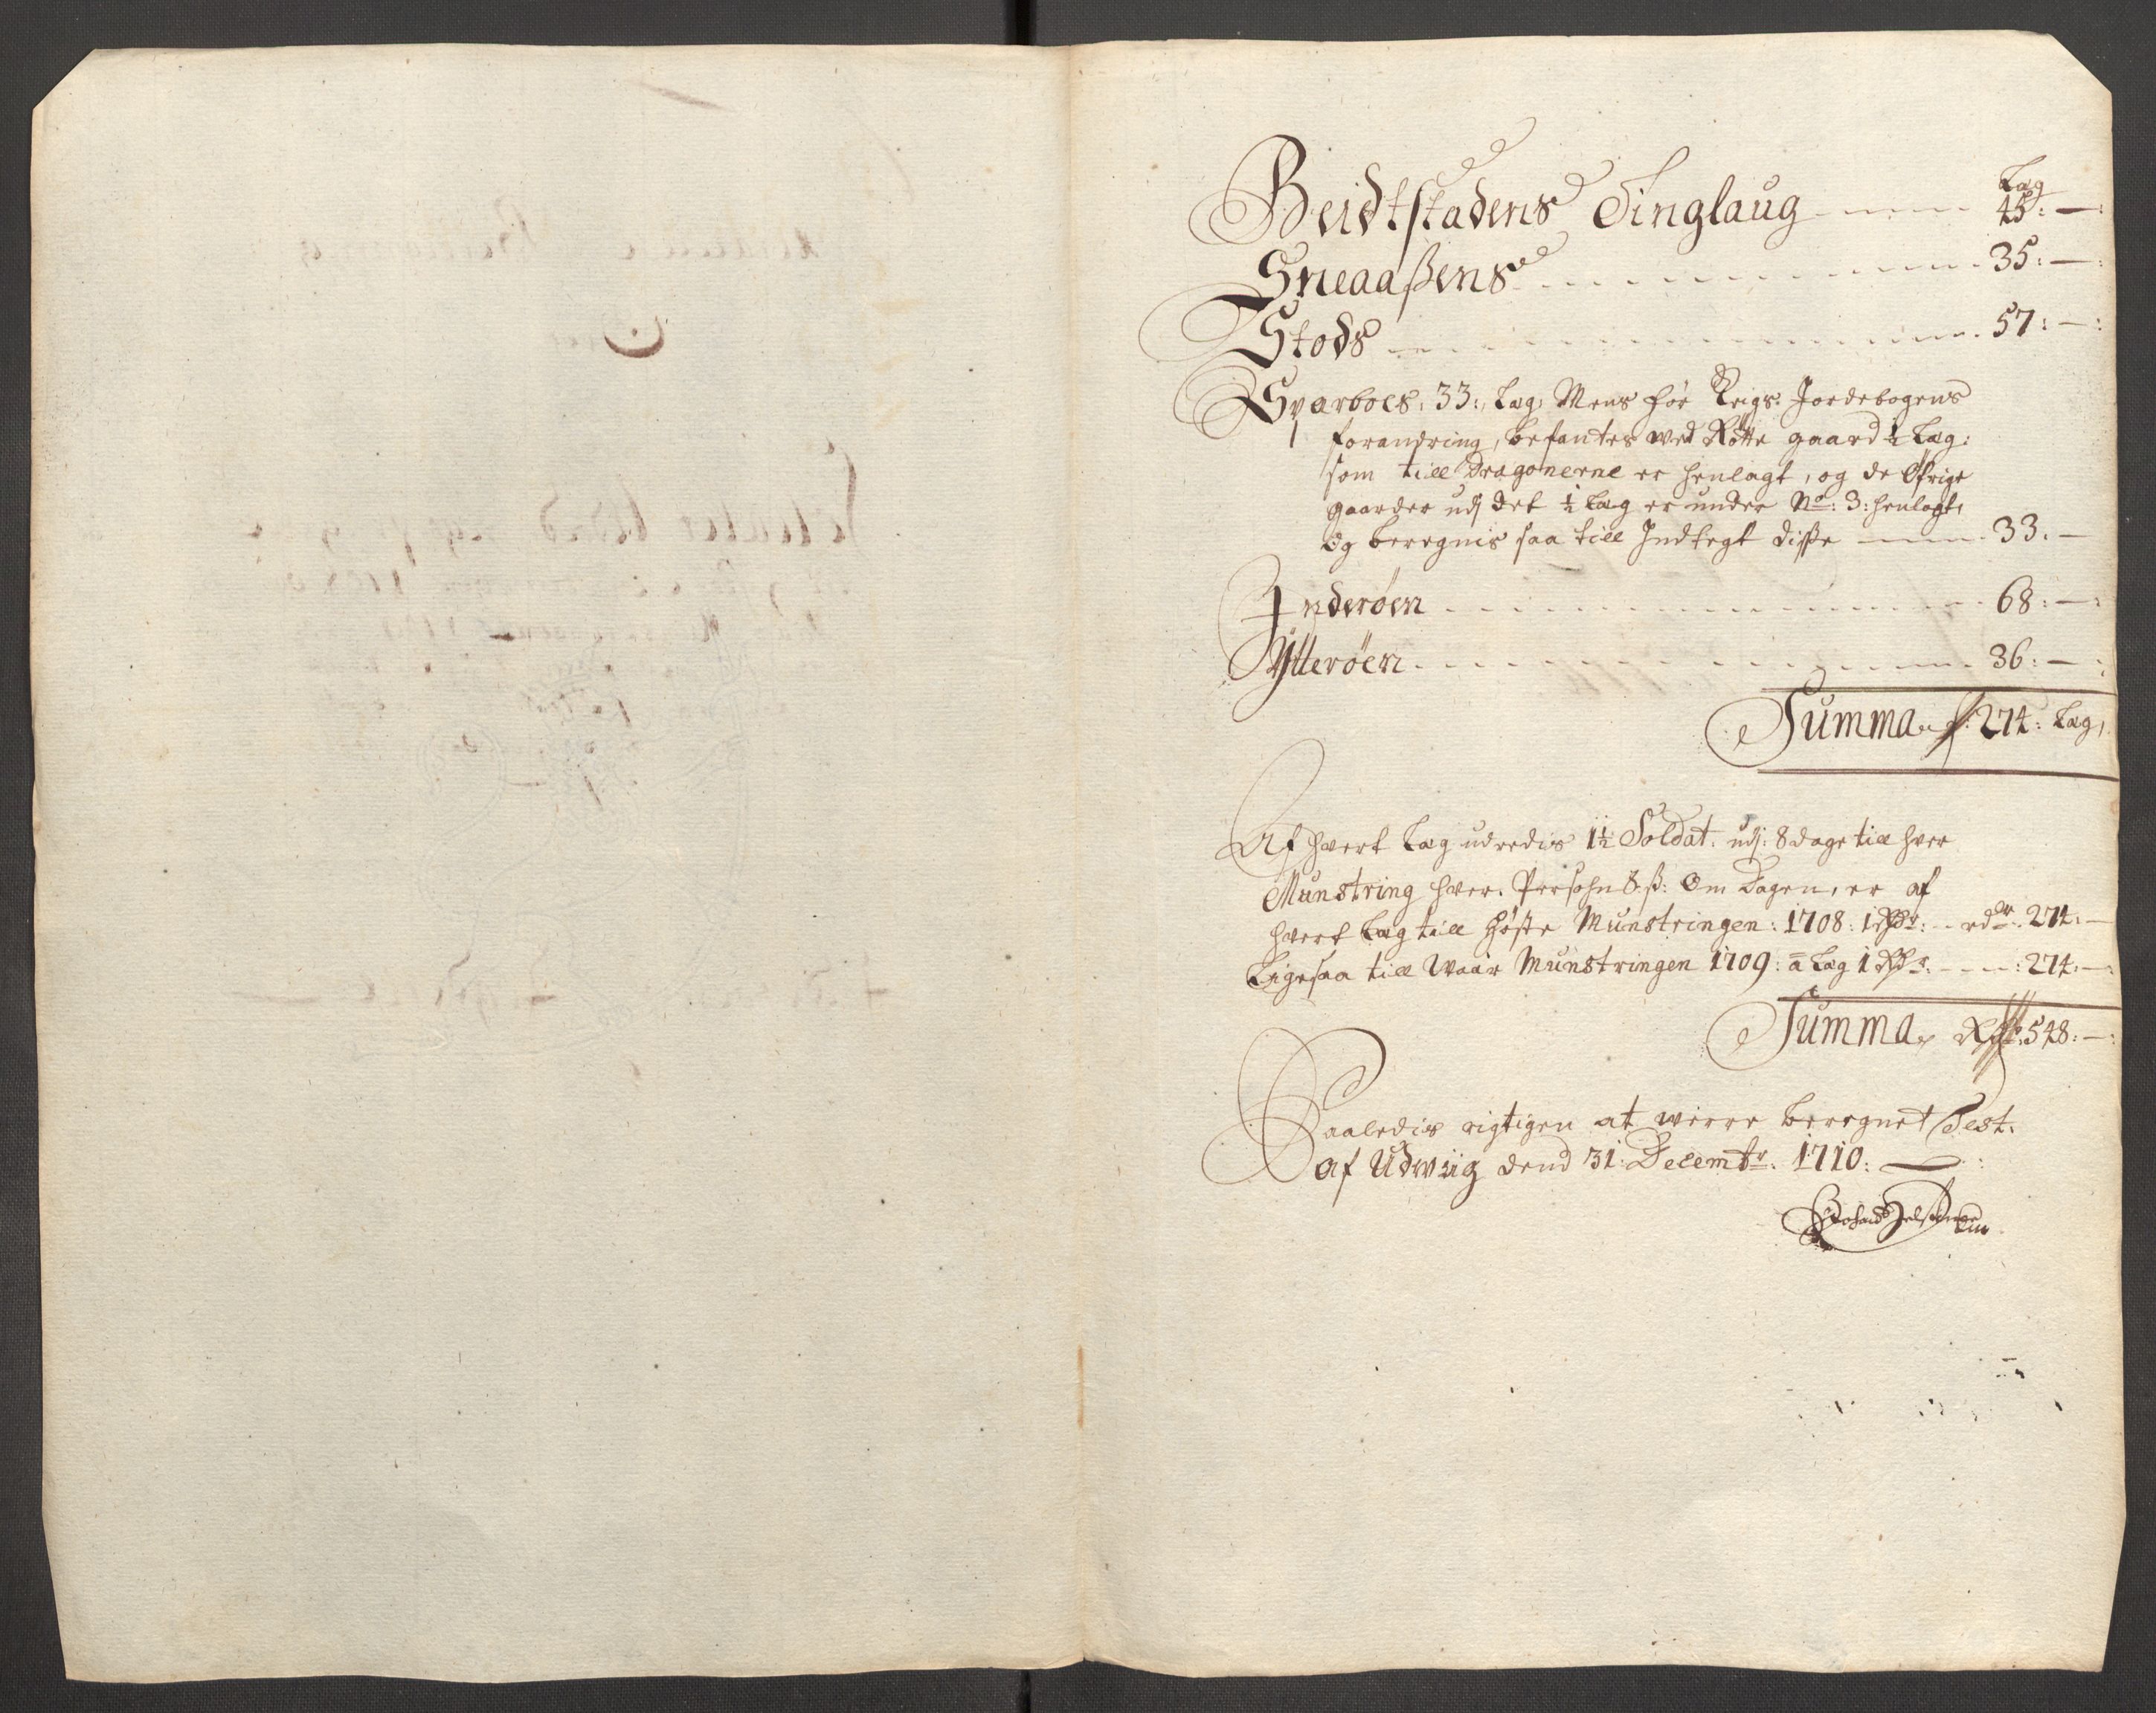 Læg
Beidtstadens Tinglaug 45:—:
Sneaaßens 35:—:
Stods 57:—:
Sparboes, 33: Læg, Mens för Krigs Jordebogens
forandring, befantes wed Røtte gaard ½ Læg:
som till Dragonerne er henlagt, og de Øfrige
gaarder udj det ½ Læg er under No: 3: henlagt,
og beregnis saa till Indtegt diße 33.—
Inderöen 68:—:
Ytteröen 36:—:
Summa 274: Læg,
Af hvert Læg udredis 1½ Soldat: udj: 8 dage till hver
Munstring hver. Persohn 8 ß: Om dagen, er af
hvert Læg till höste Munstringen: 1708: 1 Rdr: rdr 274:—
Ligesaa till Waar Munstringen 1709: a Læg 1 Rdr: 274:—:
Summa Rdr. 548:—:
Saaledis rigtigen at werre beregnet Test.
af Udwiig dend 31: Decembr: 1710: